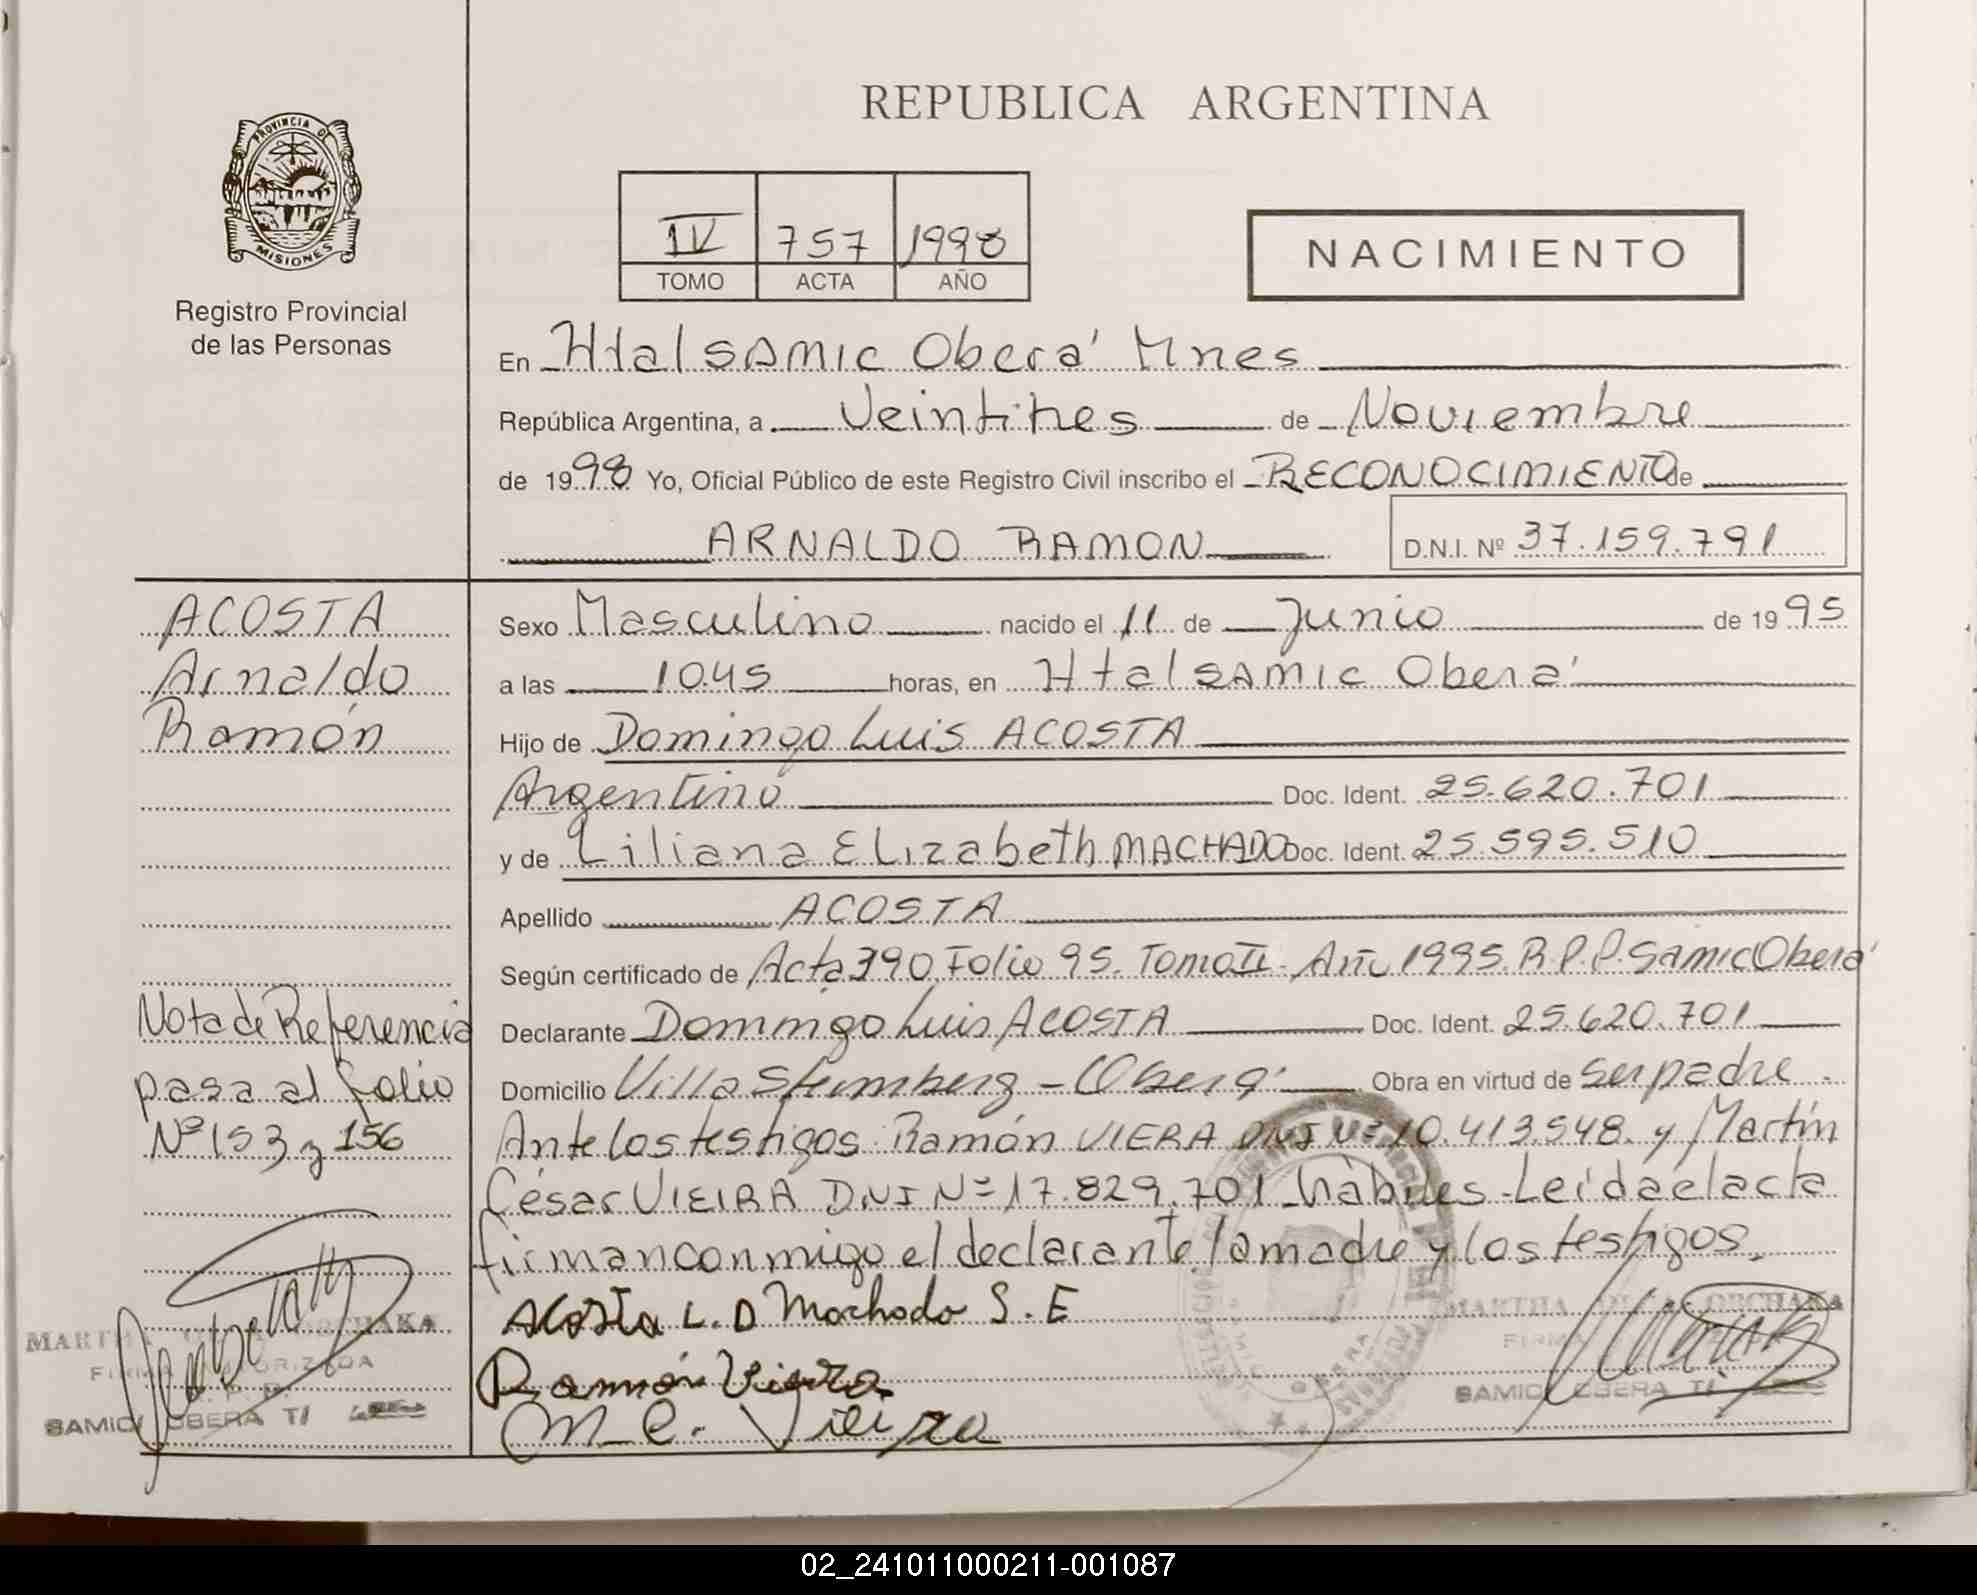 REPUBLICA ARGENTINA
PROVINCIA DE
MISIONES
Registro Provincial
de las Personas
IV 757 1998
TOMO ACTA AÑO
NACIMIENTO
En Htal SAMIC Oberá Mnes
República Argentina, a Veintitres de Noviembre
de 1998 Yo, Oficial Público de este Registro Civil inscribo el RECONOCIMIENTO de
ARNALDO RAMON D.N.I. Nº 37.159.791
ACOSTA
Arnaldo
Ramón
Sexo Masculino nacido el 11 de Junio de 1995
a las 10.45 horas, en Htal SAMIC Oberá
Hijo de Domingo Luis ACOSTA
Argentino Doc. Ident. 25.620.701
y de Liliana ELizabeth MACHADO Doc. Ident. 25.595.510
Apellido ACOSTA
Según certificado de Acta 390 Folio 95. Tomo II. Año 1995. R.P.P. Samic Oberá
Declarante Domingo Luis ACOSTA Doc. Ident. 25.620.701
Domicilio Villa Stemberg - Oberá Obra en virtud de ser padre.
Ante los testigos Ramón VIERA DNI Nº 10.413.548. y Martín
César VIEIRA DNI Nº 17.829.701 hábiles - Leída el acta
firman conmigo el declarante, la madre y los testigos.
Nota de Referencia
pasa al folio
Nº 153 y 156
Acosta L. D Machado S. E
Ramón Viera
M. C. Vieira
MARTHA ORCHAKA
FIRMA AUTORIZADA
SAMIC OBERA
MARTHA ORCHAKA
FIRMA
SAMIC OBERA
02_241011000211-001087